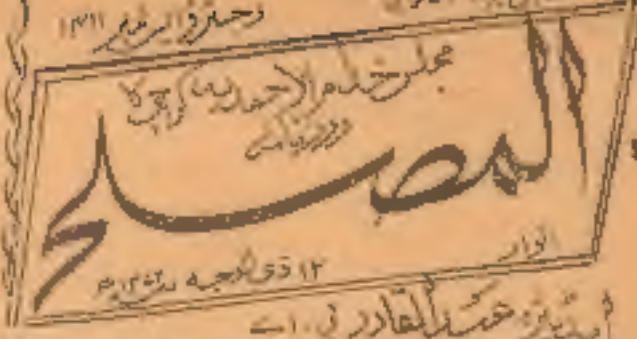 رجسٹرڈ ایل نمبر ۱۴۱۱
مجلس خدام الاحمدیہ کراچی کا
روزنامہ
المصلح
اتوار
۱۲ ذی الحجہ ۱۳۷۲ھ
ایڈیٹر: عبدالقادر بی۔اے